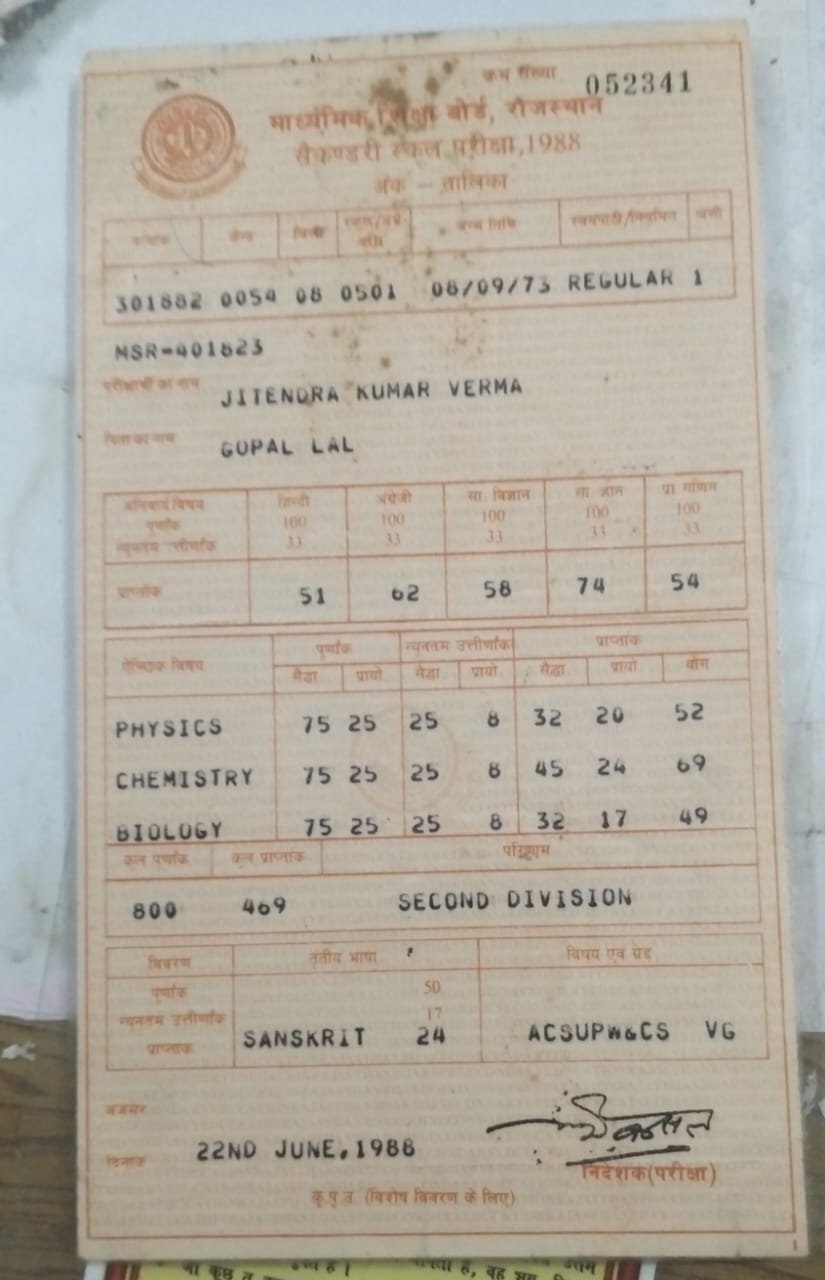 क्रम संख्या 052341
माध्यमिक शिक्षा बोर्ड, राजस्थान
सैकण्डरी स्कूल परीक्षा,1988
अंक - तालिका
क्रमांक केन्द्र जिला जन्म तिथि स्वयंपाठी/नियमित श्रेणी
301882 0054 08 0501 08/09/73 REGULAR 1
MSR-401823
परीक्षार्थी का नाम JITENDRA KUMAR VERMA
पिता का नाम GOPAL LAL
अनिवार्य विषय हिन्दी अंग्रेजी सा. विज्ञान सा. ज्ञान प्रा. गणित
पूर्णांक 100 100 100 100 100
न्यूनतम उत्तीर्णांक 33 33 33 33 33
प्राप्तांक 51 62 58 74 54
ऐच्छिक विषय पूर्णांक न्यूनतम उत्तीर्णांक प्राप्तांक
सैद्धा. प्रायो. सैद्धा. प्रायो. सैद्धा. प्रायो. योग
PHYSICS 75 25 25 8 32 20 52
CHEMISTRY 75 25 25 8 45 24 69
BIOLOGY 75 25 25 8 32 17 49
कुल पूर्णांक कुल प्राप्तांक परिणाम
800 469 SECOND DIVISION
विवरण तृतीय भाषा विषय एवं ग्रेड
पूर्णांक 50
न्यूनतम उत्तीर्णांक 17
प्राप्तांक SANSKRIT 24 ACSUPW&CS VG
अजमेर
दिनांक 22ND JUNE,1988
निदेशक(परीक्षा)
कृ.पृ.उ. (विशेष विवरण के लिए)